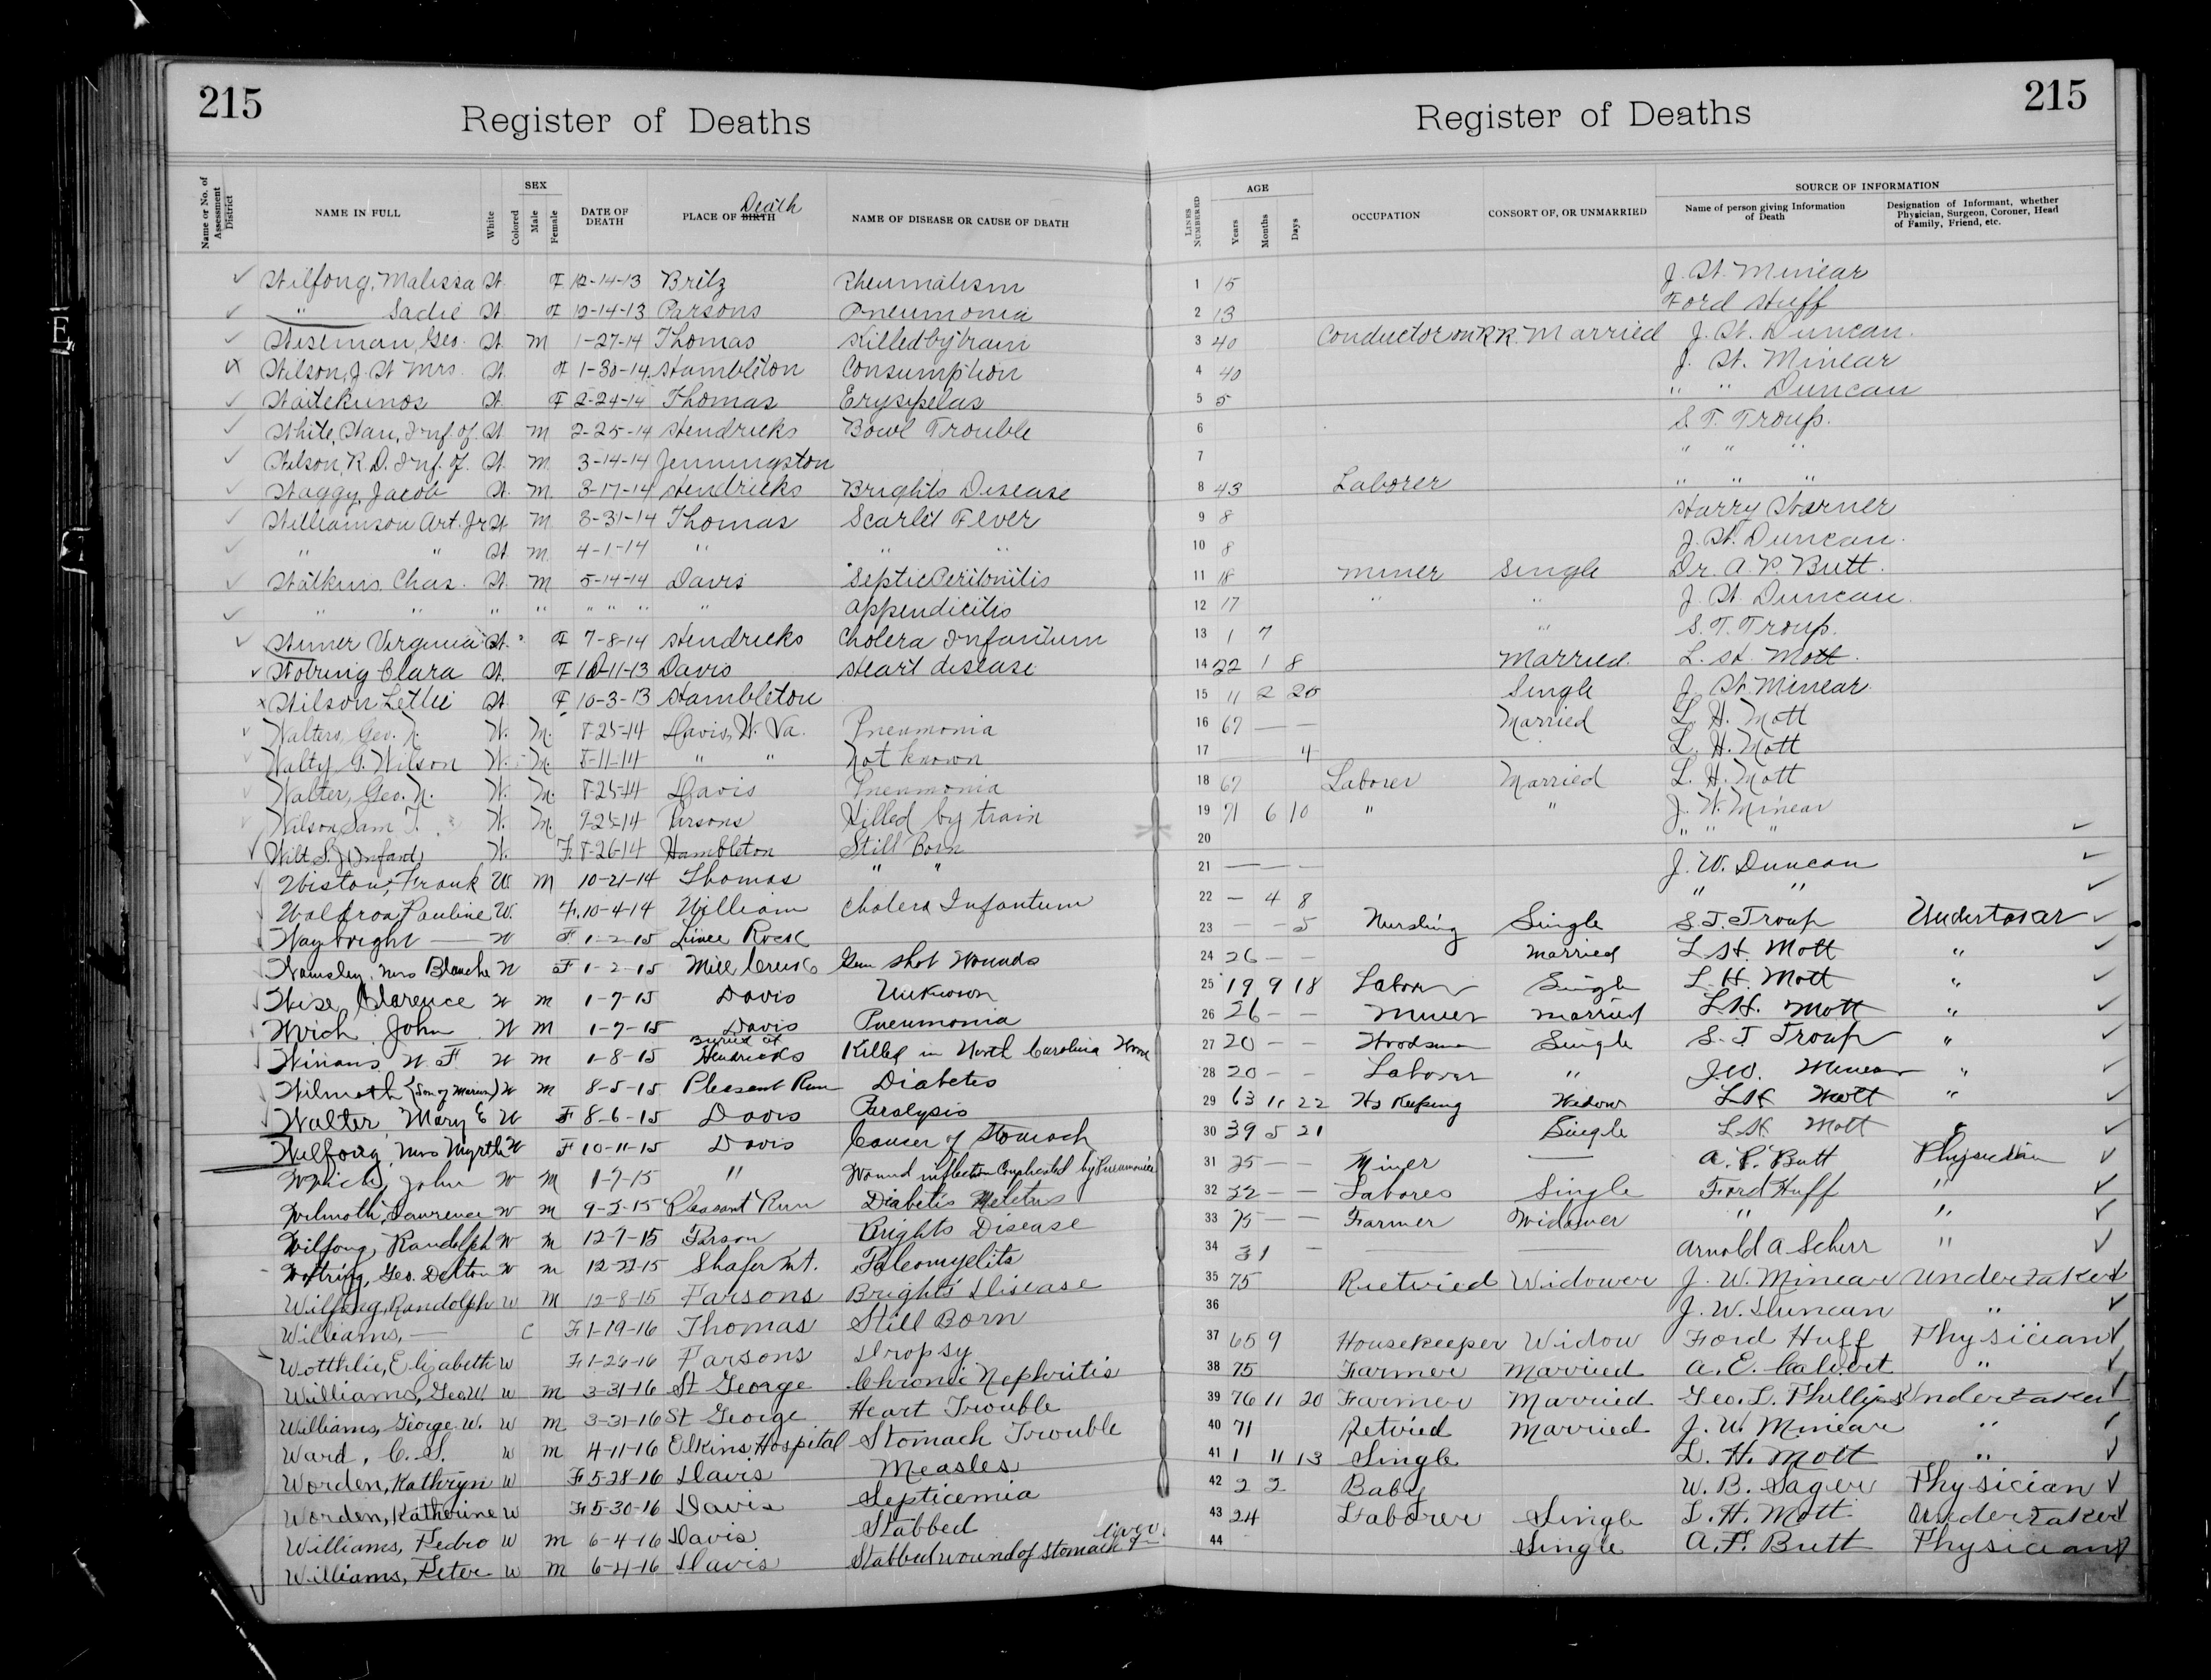 215
Register of Deaths
Name or No. of Assessment District
NAME IN FULL
SEX
White
Colored
Male
Female
DATE OF DEATH
PLACE OF BIRTH Death
NAME OF DISEASE OR CAUSE OF DEATH
Wilfong, Malissa W. F 12-14-13 Britz Rheumatism
" Sadie W. F 12-14-13 Parsons Pneumonia
Wiseman, Geo. W. M 1-27-14 Thomas Killed by train
Wilson, J. W Mrs. W. F 1-30-14 Hambleton Consumption
Waitekunos W. F 2-24-14 Thomas Erysipelas
White, Wau, Inf. of W. M 2-25-14 Hendricks Bowl Trouble
Wilson, R. D. Inf. of. W. M. 3-14-14 Jenningston
Waggy, Jacob W. M. 3-17-14 Hendricks Brights Disease
Williamson Art. Jr W. M 3-31-14 Thomas Scarlet Fever
" " W. M. 4-1-14 " " "
Watkins, Chas. W. M 5-14-14 Davis Septic Peritonitis
" " " " " " " " appendicitis
Wimer Virginia W. F 7-8-14 Hendricks Cholera Infantum
Wotring Clara W. F 10-11-13 Davis Heart disease
Wilson Lettie W. F 10-3-13 Hambleton
Walters, Geo. N. W. M. 8-25-14 Davis, W. Va. Pneumonia
Walty G. Wilson W. M. 8-11-14 " " Not known
Walter, Geo. N. W. M. 8-25-14 Davis Pneumonia
Wilson Sam T. W. M. 9-25-14 Parsons Killed by train
Wilt S. J (Infant) W. F. 8-26-14 Hambleton Still Born
Wiston, Frank W M 10-21-14 Thomas " "
Pauline W. F. 10-4-14 William Cholera Infantum
Waybright — W F 1-2-15 Lime Rock
Wamsley, Mrs Blanche W F 1-2-15 Mill Creek Gun shot Wounds
Wise, Clarence W M 1-7-15 Davis Unknown
Wrich John W M 1-7-15 Davis Pneumonia
Winans, W. F. W M 1-8-15 Buried at Hendricks Killed in North Carolina
Wilmoth (Son of Marion) W M 8-5-15 Pleasant Run Diabetes
Walter, Mary E W F 8-6-15 Davis Paralysis
Wilfong, Mrs Myrtle W F 10-11-15 Davis Cancer of Stomach
Wrich, John W M 1-7-15 " Wound inflection Complicated by Pneumonia
Wilmoth, Lawrence W M 9-5-15 Pleasant Run Diabetis Meletus
Wilfong, Randolph W M 12-7-15 Parson Brights Disease
Wotring, Geo. Delton W M 12-27-15 Shafer Mt. Poleomyelits
Wilfong, Randolph W M 12-8-15 Parsons Bright's Disease
Williams, — C F 1-19-16 Thomas Still Born
Elizabeth W F 1-26-16 Parsons Dropsy
Williams, Geo W. W M 3-31-16 St George Chronic Nephritis
Williams, George W. W M 3-31-16 St George Heart Trouble
Ward, C. S. W M 4-11-16 Elkins Hospital Stomach Trouble
Worden, Kathryn W F 5-28-16 Davis Measles
Worden, Katherine W F 5-30-16 Davis Septicemia
Williams, Pedro W M 6-4-16 Davis Stabbed
Williams, Peter W M 6-4-16 Davis Stabbed wound of stomach & liver
215
Register of Deaths
LINES NUMBERED
AGE
Years
Months
Days
OCCUPATION
CONSORT OF, OR UNMARRIED
SOURCE OF INFORMATION
Name of person giving Information of Death
Designation of Informant, whether Physician, Surgeon, Coroner, Head of Family, Friend, etc.
1 15 J. W. Minear
2 13 Ford Huff
3 40 Conductor on R.R. Married J. W. Duncan.
4 40 J. W. Minear
5 5 " " Duncan
6 S. T. Troup.
7 " " "
8 43 Laborer " " "
9 8 Harry Warner
10 8 J. W. Duncan.
11 18 Miner Single Dr. A. P. Butt.
12 17 " " J. W. Duncan.
13 1 7 " S. T. Troup.
14 22 1 8 Married. L. H. Mott.
15 11 2 20 Single J. W. Minear.
16 67 — — Married L. H. Mott
17 4 L. H. Mott
18 67 Laborer Married L. H. Mott
19 71 6 10 " " J. W. Minear
20 " " "
21 — — — J. W. Duncan
22 — 4 8 " "
23 — — 5 Nursling Single S. T. Troup Undertaker
24 26 — — Married L H. Mott "
25 19 9 18 Laborer Single L. H. Mott "
26 26 — — Miner Married L H. Mott "
27 20 — — Woodsman Single S. T. Troup "
28 20 — — Laborer " J.W. Minear "
29 63 11 22 Hs Keeping Widow L H Mott "
30 39 5 21 Single L H Mott "
31 25 — — Miner — A. P. Butt Physician
32 22 — — Labores Single Ford Huff "
33 75 — — Farmer Widower " "
34 31 — — — Arnold A Scherr "
35 75 Rietried Widower J. W. Minear Undertaker
36 J. W. Duncan "
37 65 9 Housekeeper Widow Ford Huff Physician
38 75 Farmer Married A. E. Calvert "
39 76 11 20 Farmer Married Geo. L. Phillips Undertaker
40 71 Retried Married J. W. Minear "
41 1 11 13 Single L. H. Mott "
42 2 2 Baby W. B. Sager Physician
43 24 Laborer Single L. H. Mott Undertaker
44 Single A. P. Butt Physician